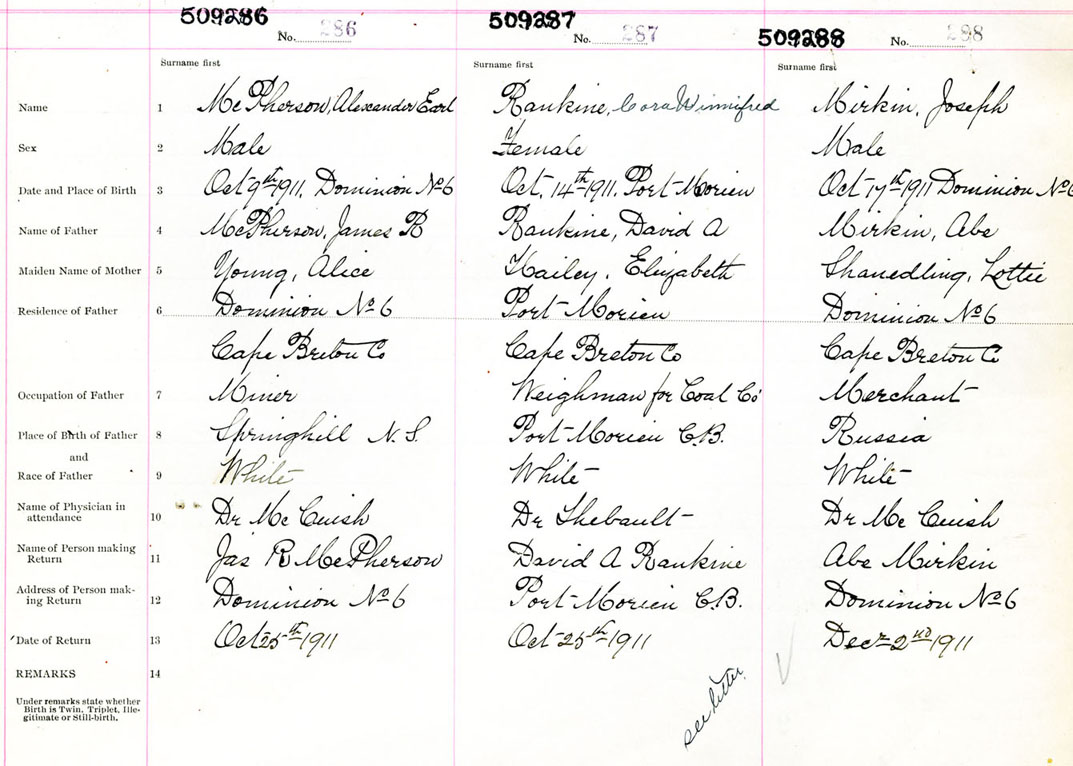 509286 509287 509288
No. 286 No. 287 No. 288
Surname first Surname first Surname first
Name 1 McPherson, Alexander Earl Rankine, Cora Winnifred Mirkin, Joseph
Sex 2 Male Female Male
Date and Place of Birth 3 Oct 9th 1911, Dominion No 6 Oct. 14th 1911. Port Morien Oct 17th 1911 Dominion No 6
Name of Father 4 McPherson, James R Rankine, David A Mirkin, Abe
Maiden Name of Mother 5 Young, Alice Hailey, Elizabeth Shanedling, Lottie
Residence of Father 6 Dominion No 6 Port Morien Dominion No 6
Cape Breton Co Cape Breton Co Cape Breton Co
Occupation of Father 7 Miner Weighman for Coal Co Merchant
Place of Birth of Father 8 Springhill N.S. Port Morien C.B. Russia
and
Race of Father 9 White White White
Name of Physician in
attendance 10 Dr McCuish Dr Thebault Dr McCuish
Name of Person making
Return 11 Jas R McPherson David A Rankine Abe Mirkin
Address of Person mak-
ing Return 12 Dominion No 6 Port Morien C.B. Dominion No 6
Date of Return 13 Oct 25th 1911 Oct 25th 1911 Decr 2nd 1911
REMARKS 14
Under remarks state whether
Birth is Twin, Triplet, Ille-
gitimate or Still-birth.
see letter